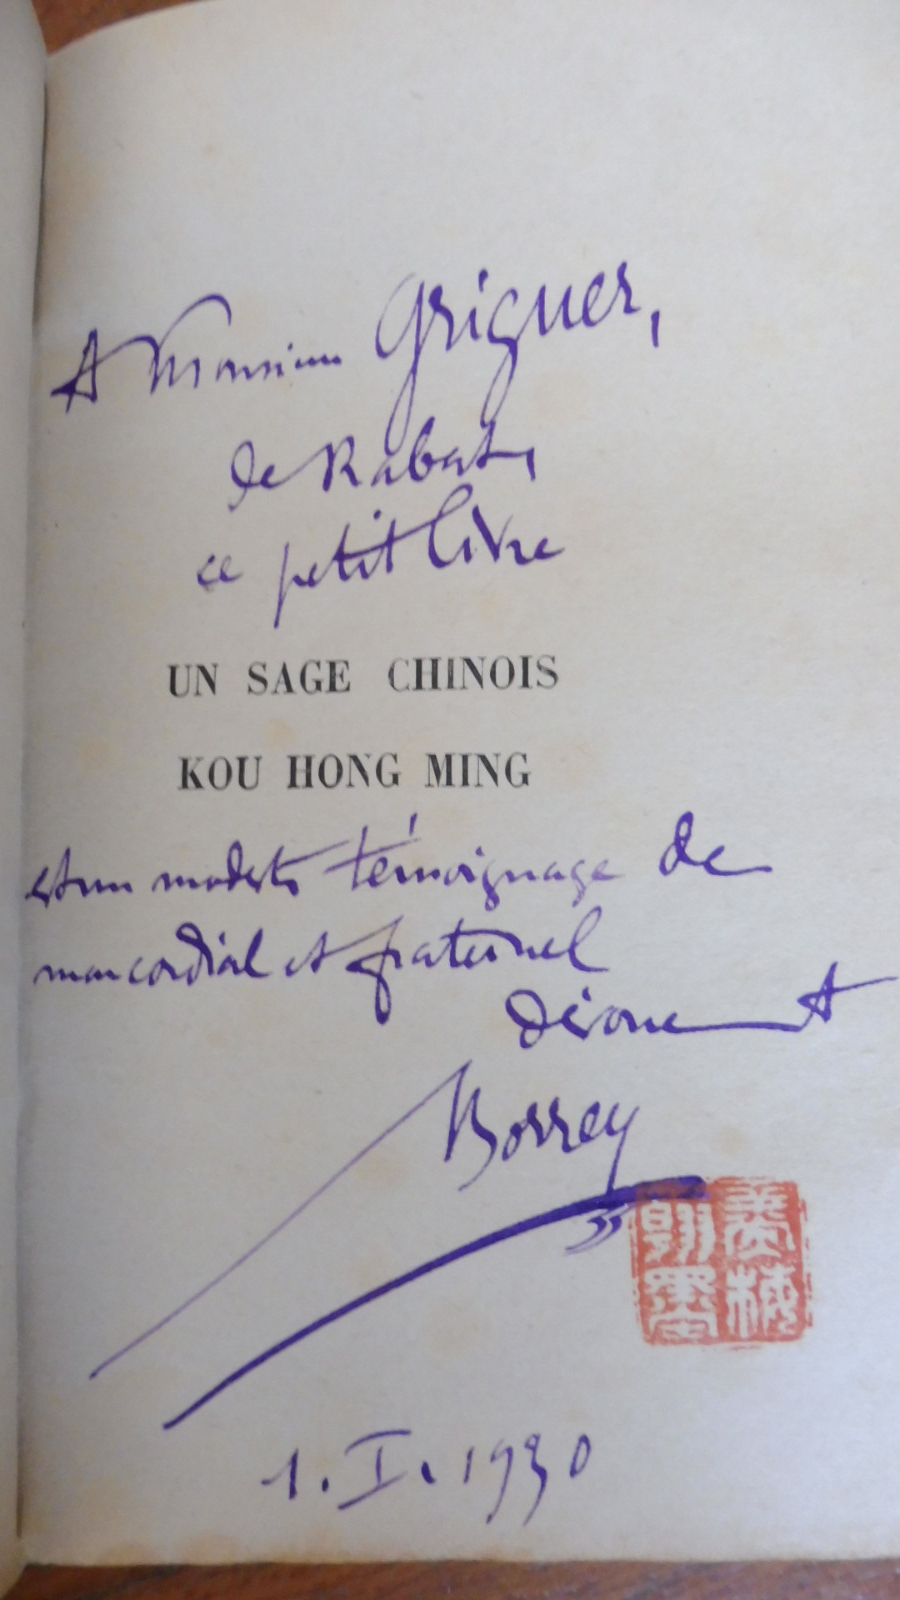 A Monsieur Griguer,
de Rabat,
ce petit livre
UN SAGE CHINOIS
KOU HONG MING
est un modeste témoignage de
mon cordial et fraternel
dévouement
Borrey
1. I. 1930